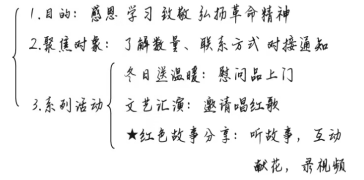 1.目的：感恩 学习致敬 弘扬革命精神
2.聚焦对象：了解数量、联系方式 对接通知
冬日送温暖：慰问品上门
3.系列活动
文艺汇演：邀请唱红歌
★红色故事分享：听故事，互动
献花，录视频